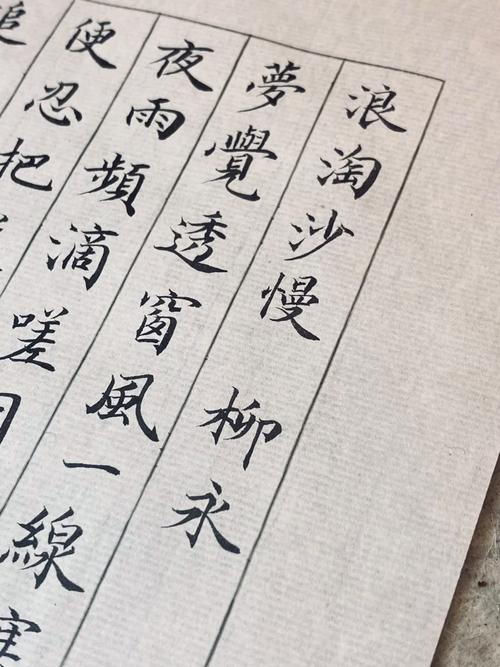 浪淘沙慢 柳永
夢覺透窗風一線寒
夜雨頻滴嗟因
便忍把
追